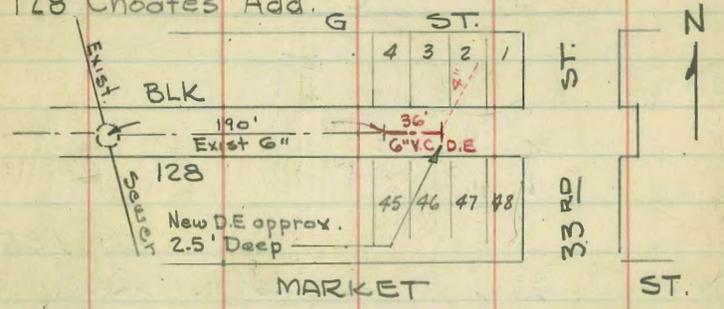 128 Choates Add.
G ST.
N
Exist.
4 3 2 1
ST.
4"
BLK
190'
Exist 6"
36'
6" V.C. D.E
128
Sewer
45 46 47 48
33 RD
New D.E approx.
2.5' Deep
MARKET ST.